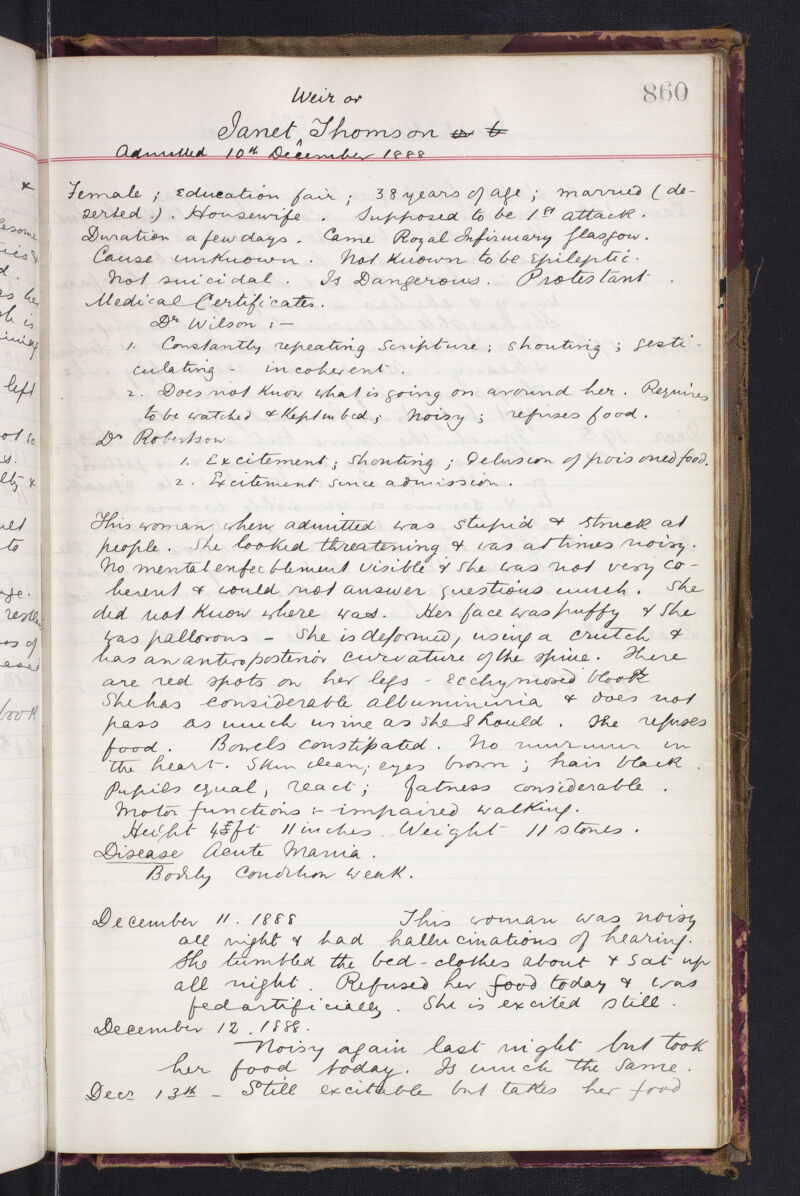 860
Weir or
Janet ^ Thomson or b
Admitted 10th December 1888
Female ; Education fair ; 38 years of age ; married (de-
serted.). Housewife. Supposed to be 1st attack.
Duration a few days. Came Royal Infirmary Glasgow.
Cause unknown. Not known to be Epileptic.
Not suicidal. Is Dangerous. Protestant.
Medical Certificates.
Dr Wilson :-
1. Constantly repeating Scripture ; shouting ; gesti-
culating - incoherent.
2. Does not know what is going on around her. Requires
to be watched & kept in bed ; Noisy ; refuses food.
Dr Robertson
1. Excitement ; Shouting ; Delusion of poisoned food.
2. Excitement since admission.
This woman when admitted was stupid & struck at
people. She looked threatening & was at times noisy.
No mental enfeeblement visible & she was not very co-
herent & would not answer questions much. She
did not know where was. Her face was puffy & She
was pallorous - She is deformed, using a crutch &
has an anteroposterior curvature of the spine. There
are red spots on her legs - Ecchymosed
She has considerable albuminuria & does not
pass as much urine as she should. She refuses
food. Bowels constipated. No murmur in
the heart. Skin clean ; eyes brown ; hair black.
Pupils equal, react ; fatness considerable.
Motor functions :- impaired walking.
Height 4 ft 11 inches. Weight 11 stones.
Disease Acute Mania.
Bodily Condition weak.
December 11. 1888 This woman was noisy
all night & had hallucinations of hearing.
She tumbled the bed-clothes about & sat up
all night. Refused her food today & was
fed artificially. She is excited still.
December 12. 1888.
Noisy again last night but took
her food today. Is much the same.
Decr 13th - Still excitable but takes her food